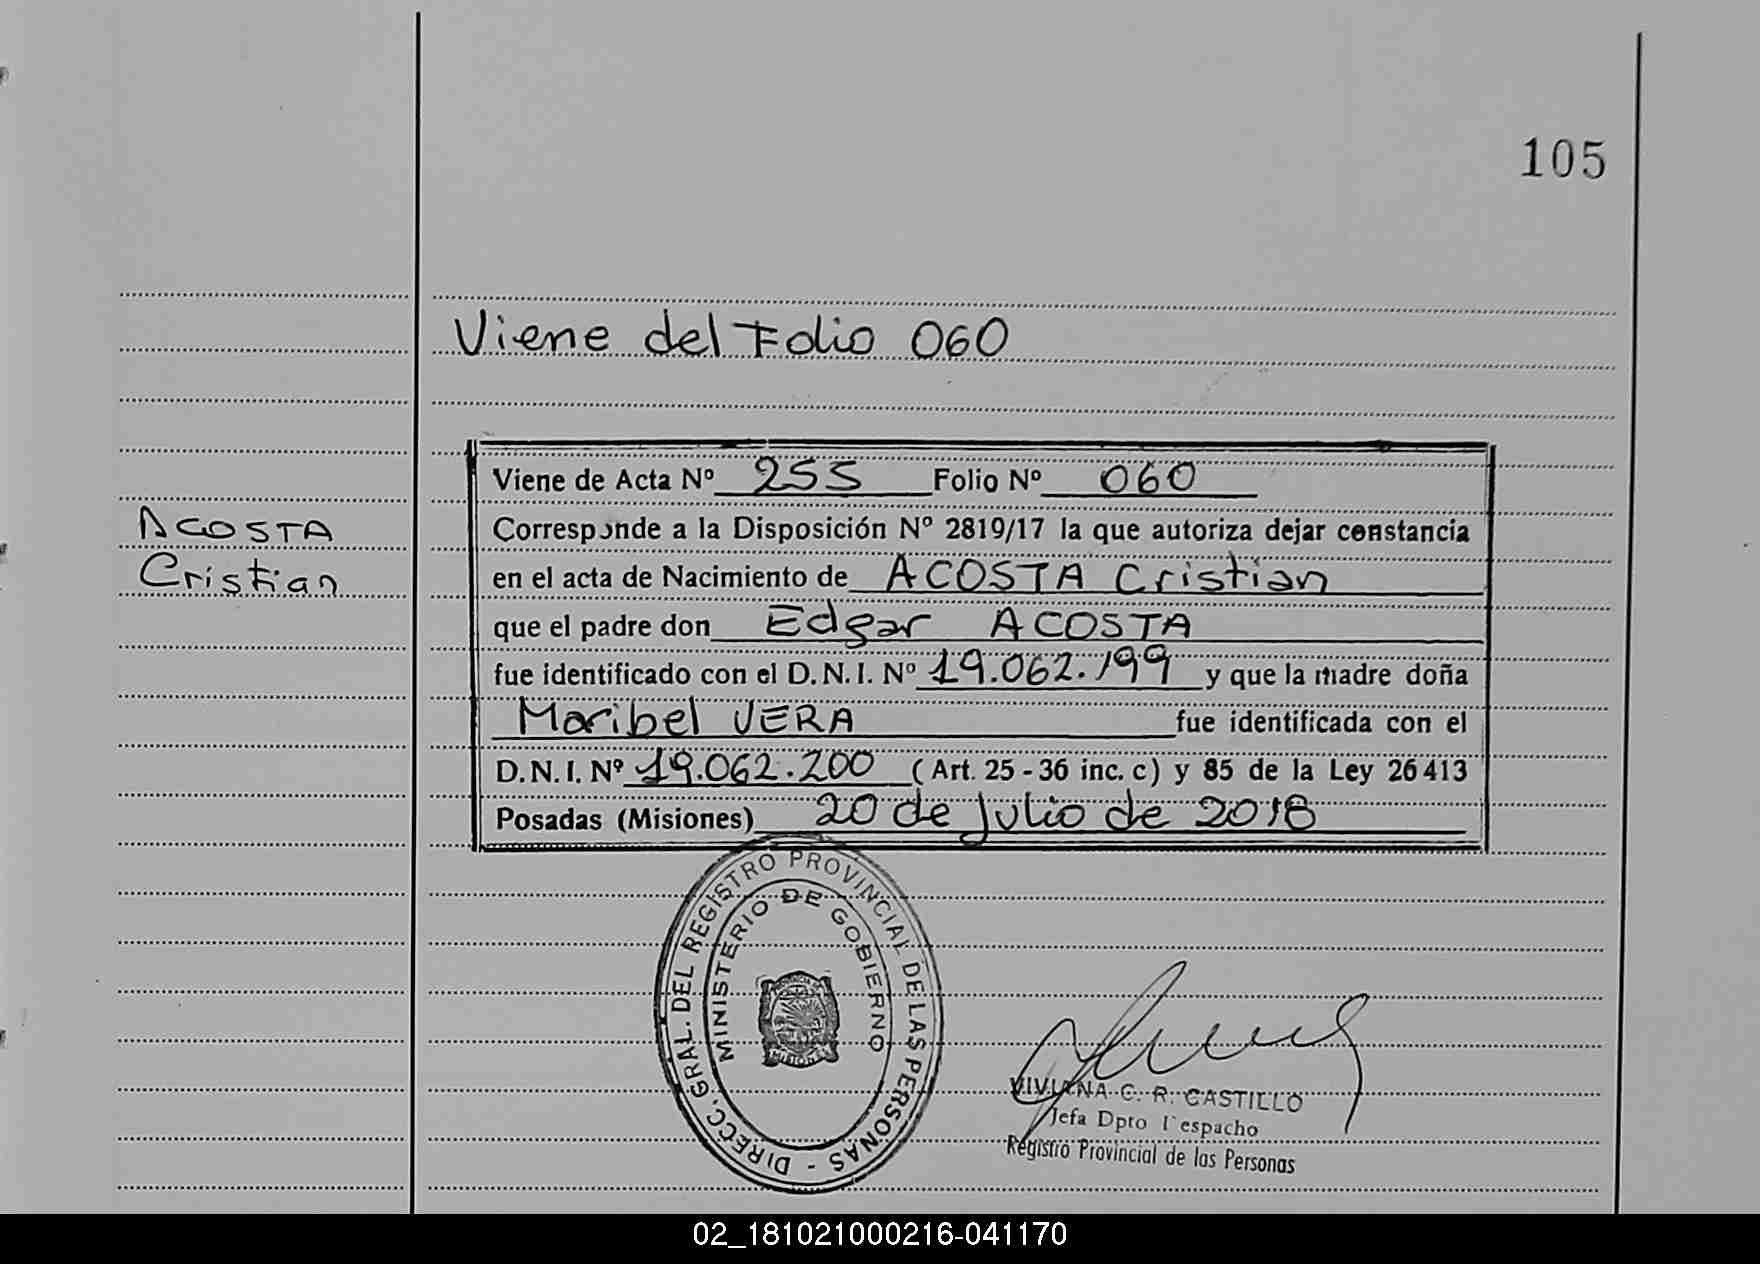 105
Viene del Folio 060
Viene de Acta Nº 255 Folio Nº 060
ACOSTA
Cristian
Corresponde a la Disposición Nº 2819/17 la que autoriza dejar constancia
en el acta de Nacimiento de ACOSTA Cristian
que el padre don Edgar ACOSTA
fue identificado con el D.N.I. Nº 19.062.199 y que la madre doña
Maribel VERA fue identificada con el
D.N.I. Nº 19.062.200 (Art. 25 - 36 inc. c) y 85 de la Ley 26413
Posadas (Misiones) 20 de Julio de 2018
DIRECC. GRAL. DEL REGISTRO PROVINCIAL DE LAS PERSONAS -
MINISTERIO DE GOBIERNO
MISIONES
VIVIANA C. R. CASTILLO
Jefa Dpto Despacho
Registro Provincial de las Personas
02_181021000216-041170